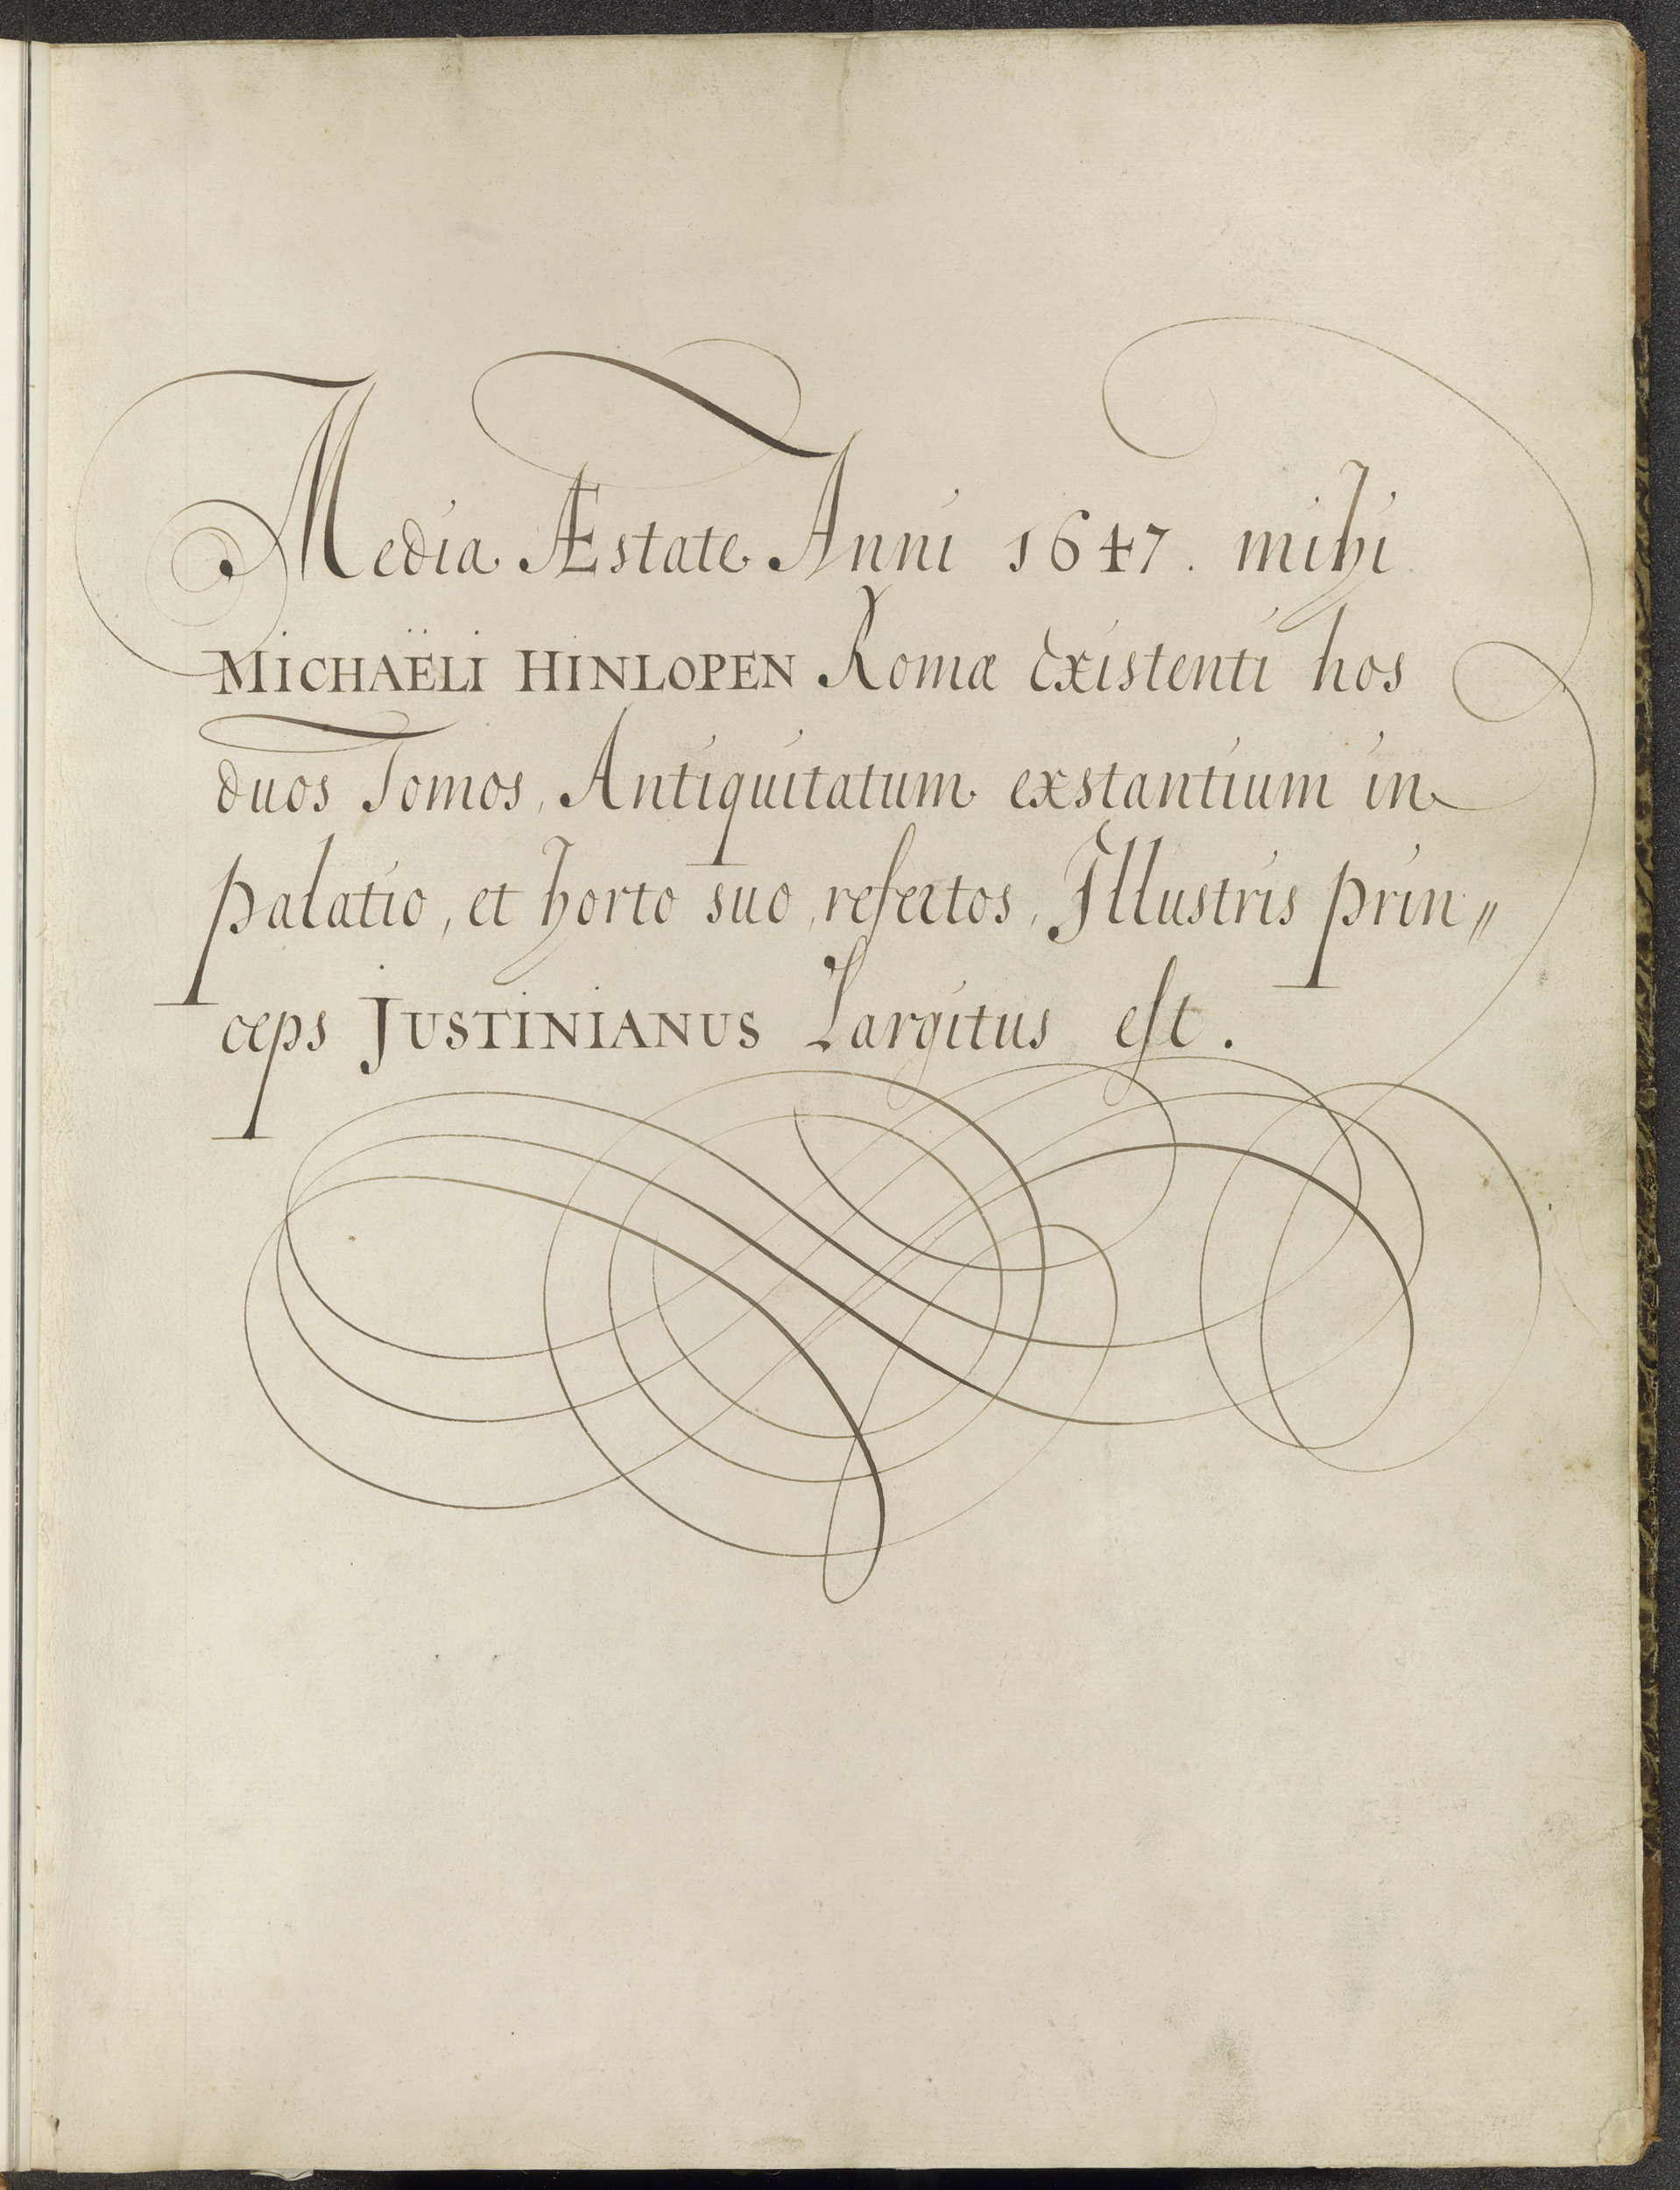 Media Æstate Anni 1647. mihi
MICHAËLI HINLOPEN Romæ Existenti hos
duos Tomos, Antiquitatum exstantium in
palatio, et horto suo, refertos, Illustris prin〃
ceps JUSTINIANUS Largitus est.